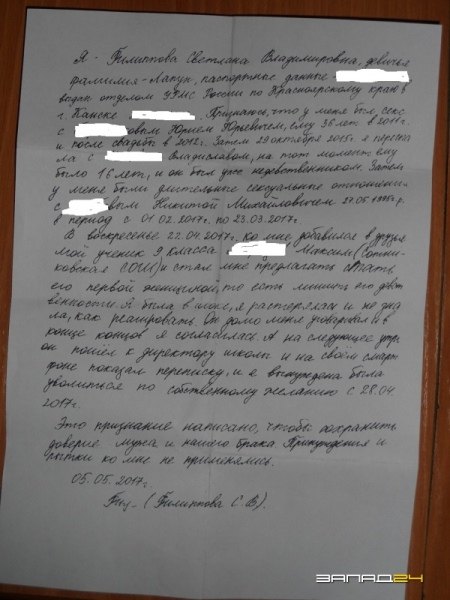 Я - Филиппова Светлана Владимировна, девичья
фамилия - Лапун, паспортные данные -
выдан отделом УФМС России по Красноярскому краю в
г. Канске . Признаюсь, что у меня был секс
с овым Юрием Юрьевичем, ему 36 лет в 2011г.
и после свадьбы в 2012г. Затем 29 октября 2015г. я переспа
ла с Владиславом, на тот момент ему
было 16 лет, и он был уже недевственником. Затем
у меня были длительные сексуальные отношения
с вым Никитой Михайловичем 27.05.1995г.р.
в период с 01.02.2017г. по 23.03.2017г.
В воскресенье 22.04.2017г. ко мне добавился в друзья
мой ученик 9 класса Максим
ковская СОШ) и стал мне предлагать стать
его первой женщиной, то есть лишить его девст
венности. Я была в шоке, я растерялась и не зна
ла, как реагировать. Он долго меня уговаривал и в
конце концов я согласилась. А на следующее утро
он пошел к директору школы и на своём смарт
фоне показал переписку, и я вынуждена была
уволиться по собственному желанию с 28.04
2017г.
Это признание написано, чтобы сохранить
доверие мужа и нашего брака. Принуждения и
пытки ко мне не применялись.
05.05.2017г.
(Филиппова С.В).
ЗАПАД24